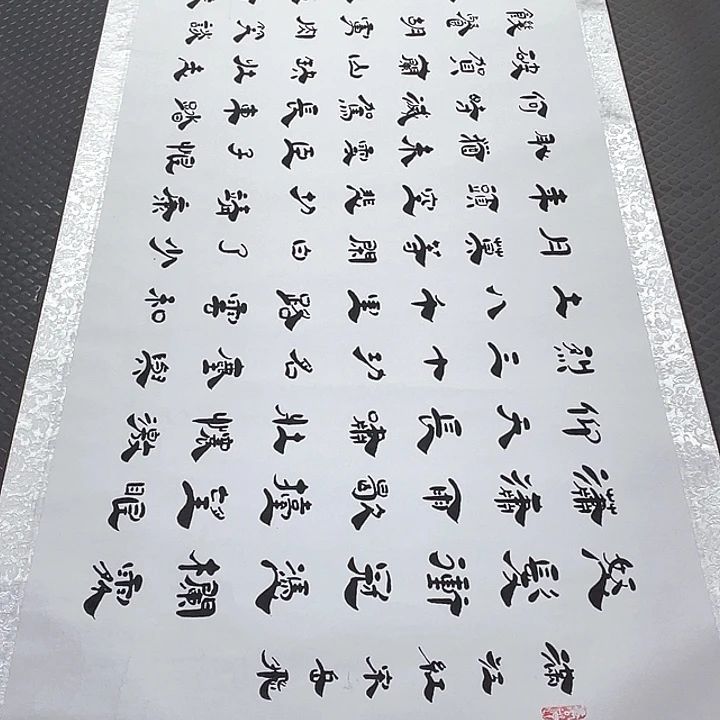 滿江紅宋岳飛
怒髮衝冠憑欄處
瀟瀟雨歇擡望眼
仰天長嘯壯懷激
烈三十功名塵與
土八千里路雲和
月莫等閑白了少
年頭空悲切靖康
耻猶未雪臣子恨
何時滅駕長車踏
破賀蘭山缺壯志
饑餐胡虜肉笑談